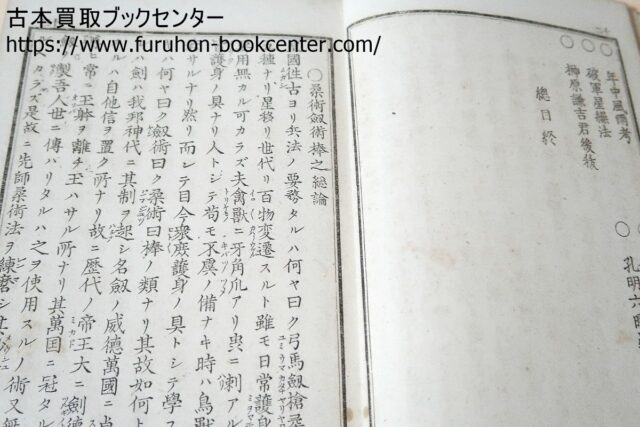 古本買取ブックセンター
https://www.furuhon-bookcenter.com/
○年中風雨考
○破軍星操法
○榊原謙吉君後抜
總目終
○孔明六
○柔術劔術棒之総論
國往古ヨリ兵法ノ要務タルハ何ヤ曰ク弓馬劔槍柔
種ナリ星移リ世代リ百物変遷スルト雖モ日常護身
用無カル可カラズ夫禽獣ニ牙角爪アリ虫ニ刺アル
護身ノ具ナリ人トシテ苟モ不虞ノ備ナキ時ハ鳥獣
サルナリ然リ而シテ目今衆庶護身ノ具トシテ學ス
ハ何ヤ曰ク劔術曰ク柔術曰ク棒ノ類ナリ其故如何ト
ハ劔ハ我邦神代ニ其制ヲ起シ名劔ノ威德萬國ニ
ルハ自他信ヲ置ク所ナリ故ニ歴代ノ帝王大ニ劔德
常ニ王躰ヲ離チ玉ハサル所ナリ其萬国ニ冠タル
製吾人世ニ傳ハリタルハ之ヲ使用スルノ術又無
カラズ是故ニ先師柔術法ヲ練磨シ其